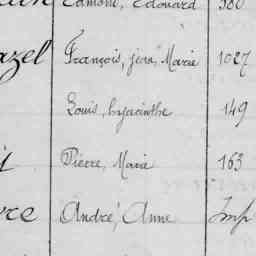 Edmond, Edouard 380
azel François, Jean, Marie 1027
Louis, hyacinthe 149
Pierre, Marie 163
re André, Anne Imp